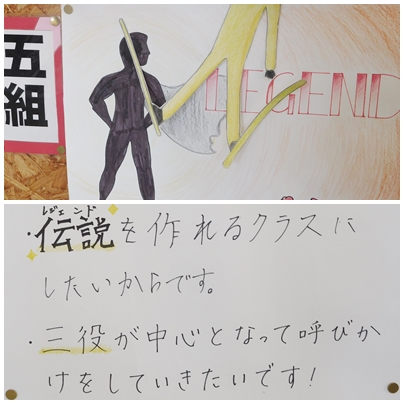 五組
LEGEND
レジェンド
・伝説を作れるクラスに
したいからです。
・三役が中心となって呼びか
けをしていきたいです!